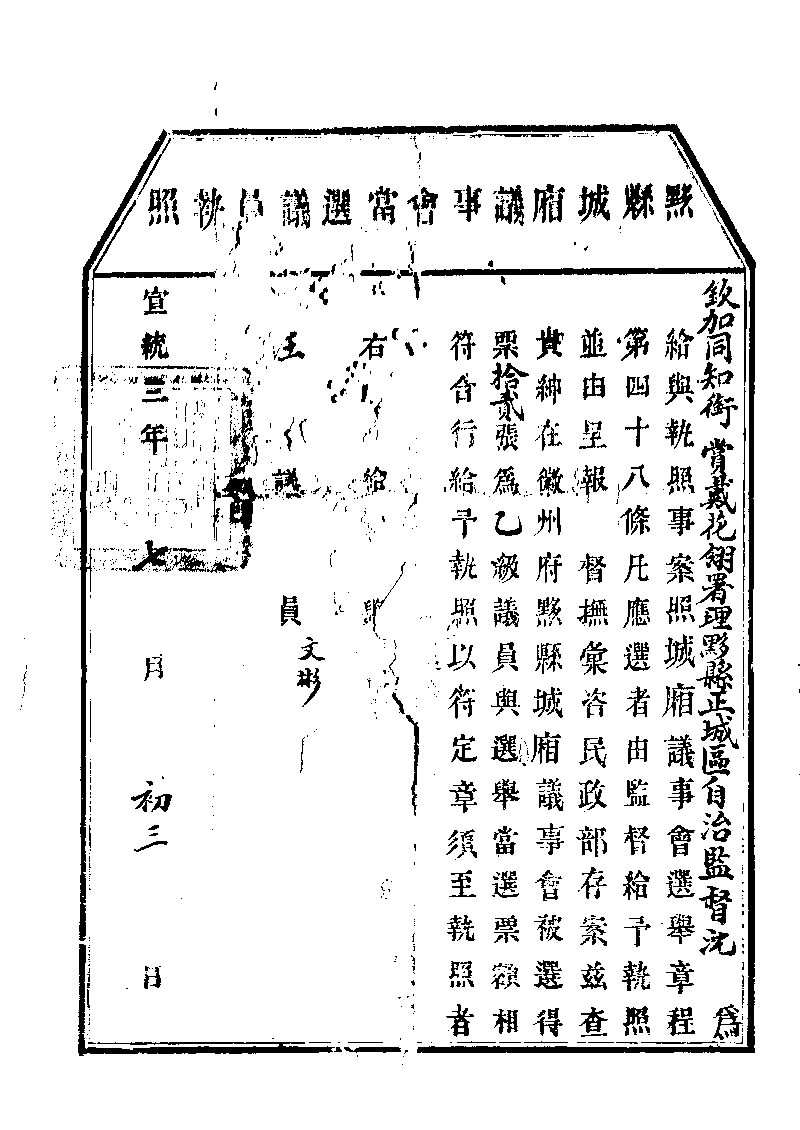 黟縣城廂議事會當選議員執照
欽加同知銜 賞戴花翎署理黟縣正城區自治監督沈 為
給與執照事案照城廂議事會選舉章程
第四十八條凡應選者由監督給予執照
並由呈報 督撫彙咨民政部存案茲查
貴紳在徽州府黟縣城廂議事會被選得
票拾貳張為乙級議員與選舉當選票額相
符合行給予執照以符定章須至執照者
右 給
王 議 員 文彬
宣統三年 七 月 初三 日